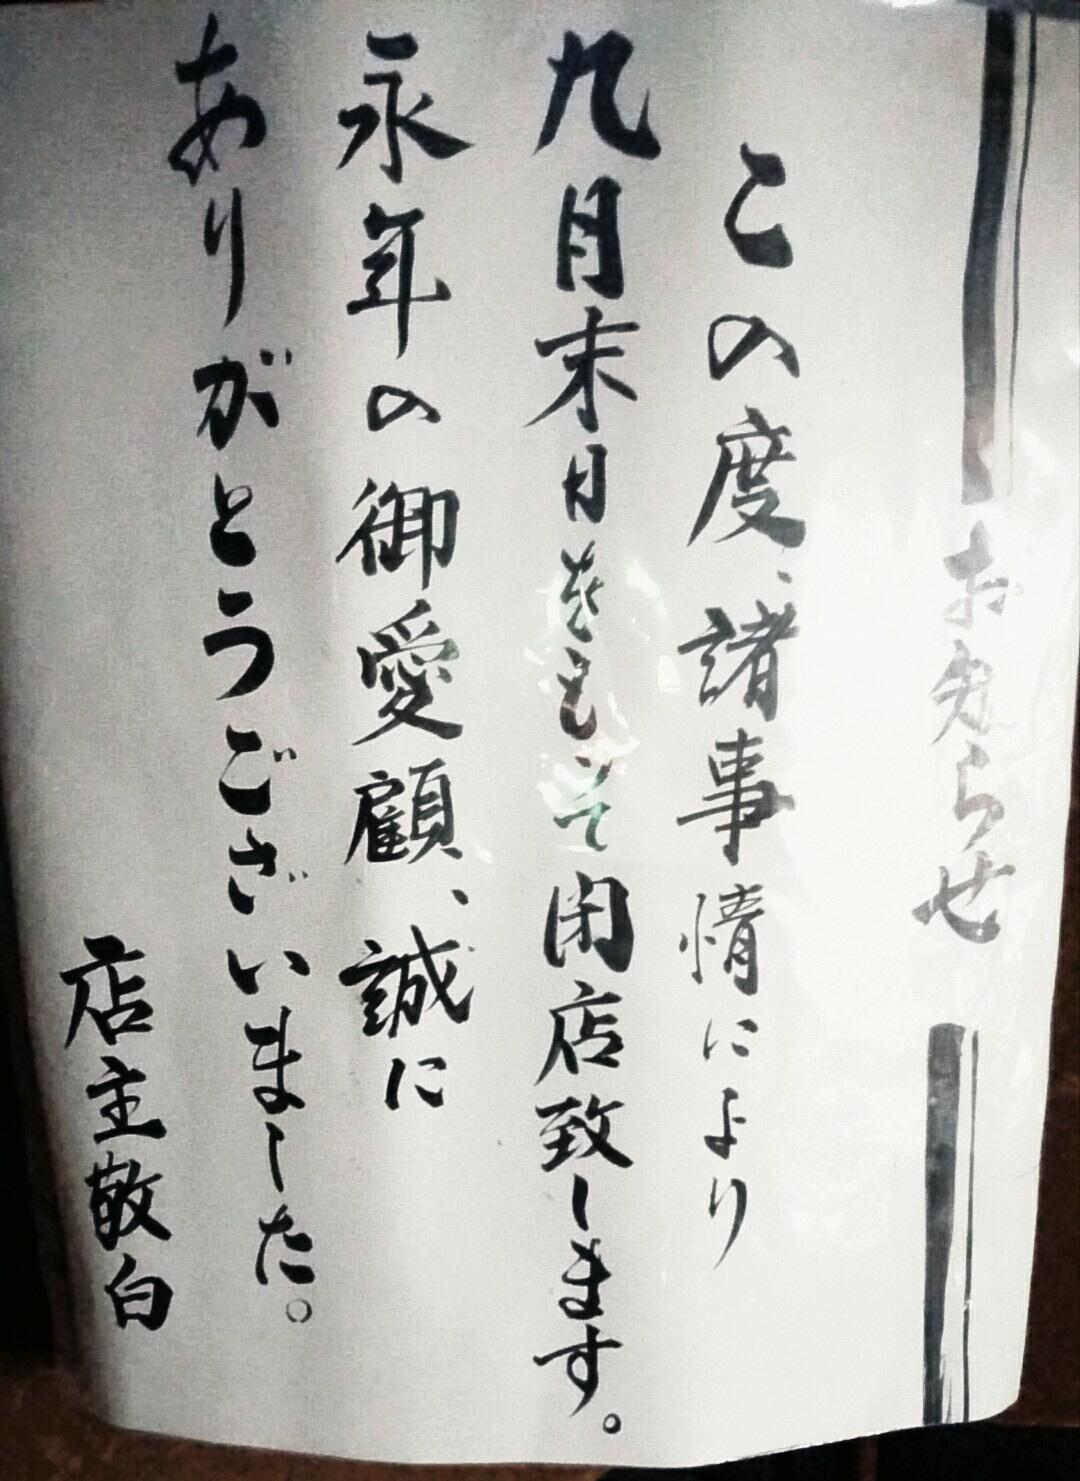 お知らせ
この度、諸事情により
九月末日をもって閉店致します。
永年の御愛顧、誠に
ありがとうございました。
店主敬白